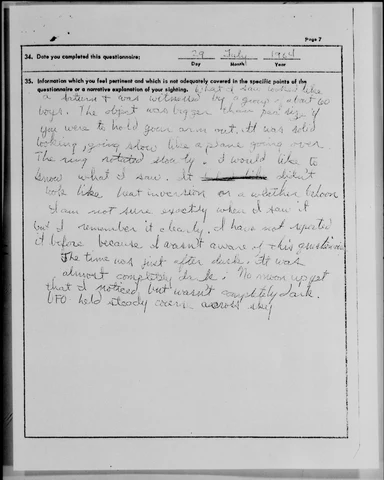 Page 7
34. Date you completed this questionnaire: 29 July 1964
Day Month Year
35. Information which you feel pertinent and which is not adequately covered in the specific points of the
questionnaire or a narrative explanation of your sighting. What I saw looked like
a Saturn & was witnessed by a group of about 60
boys. The object was bigger than pea size if
you were to hold your arm out. It was solid
looking, going slow like a plane going over.
The ring rotated slowly. I would like to
know what I saw. It didn't
look like heat inversion or a
I am not sure exactly when I saw it
but I remember it clearly. I have not reported
it before because I wasn't aware of this
The time was just after dark. It was
almost completely dark. No moon up yet
that I noticed but wasn't completely dark.
UFO held steady across sky